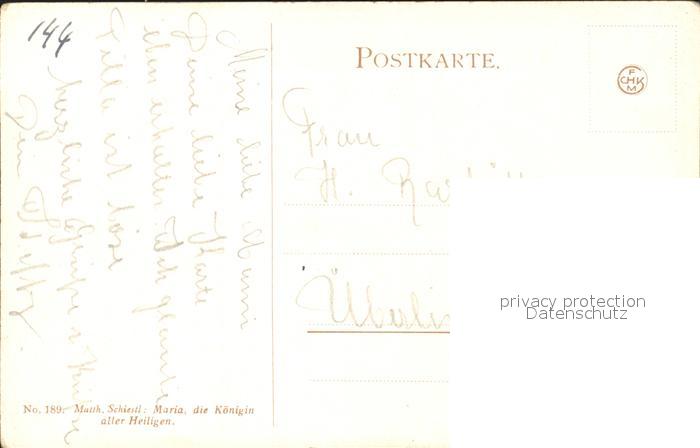 144
Meine liebe Mami
Deine liebe Karte
eben erhalten. Ich glaubte
Tilla ist böse
herzliche Grüße u. Küsse
Dein
POSTKARTE.
F
CHK
M
Frau
H.
Überlin
privacy protection
Datenschutz
No. 189. Matth. Schiestl: Maria, die Königin
aller Heiligen.